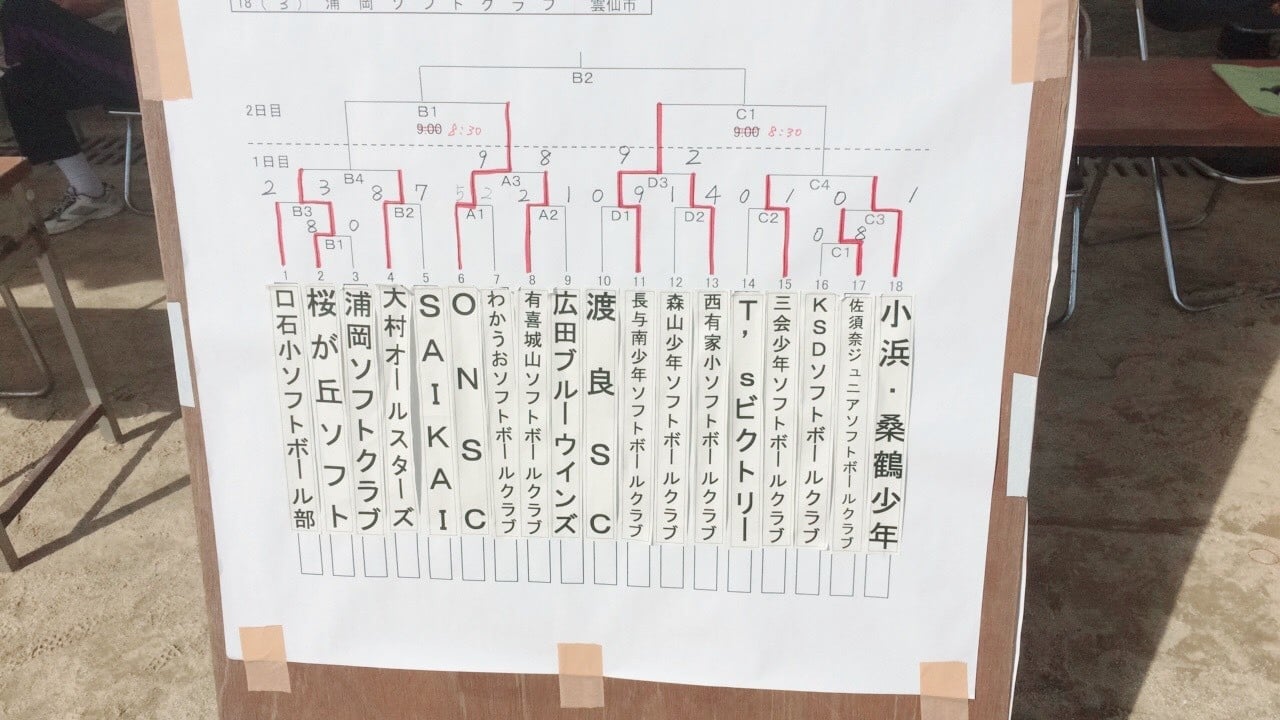 18(3) 浦岡ソフトクラブ 雲仙市
B2
2日目 B1 C1
9:00 8:30 9:00 8:30
1日目 9 8 9 2
B4 A3 D3 C4
2 3 8 7 5 2 2 1 0 9 1 4 0 1 0 1
B3 B2 A1 A2 D1 D2 C2 C3
8 0 0 8
B1 C1
1 2 3 4 5 6 7 8 9 10 11 12 13 14 15 16 17 18
口石小ソフトボール部
桜が丘ソフト
浦岡ソフトクラブ
大村オールスターズ
SAIKAI
ONSC
わかうおソフトボールクラブ
有喜城山ソフトボールクラブ
広田ブルーウインズ
渡良SC
長与南少年ソフトボールクラブ
森山少年ソフトボールクラブ
西有家小ソフトボールクラブ
T'sビクトリー
三会少年ソフトボールクラブ
KSDソフトボールクラブ
佐須奈ジュニアソフトボールクラブ
小浜・桑鶴少年